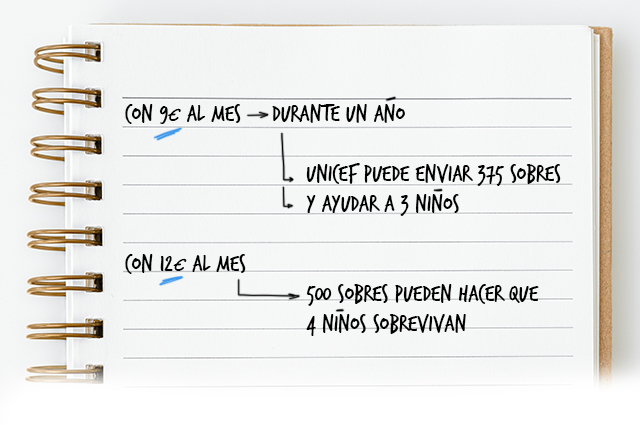 CON 9€ AL MES → DURANTE UN AÑO
UNICEF PUEDE ENVIAR 375 SOBRES
Y AYUDAR A 3 NIÑOS
CON 12€ AL MES
500 SOBRES PUEDEN HACER QUE
4 NIÑOS SOBREVIVAN